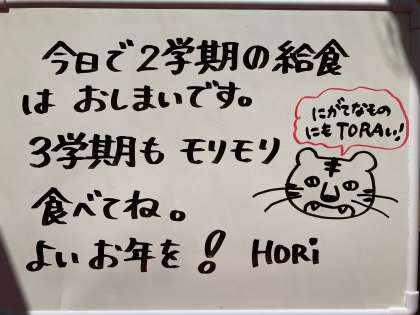 今日で2学期の給食
は おしまいです。
3学期も モリモリ
食べてね。
よいお年を! HORi
にがてなもの
にも TORAい!